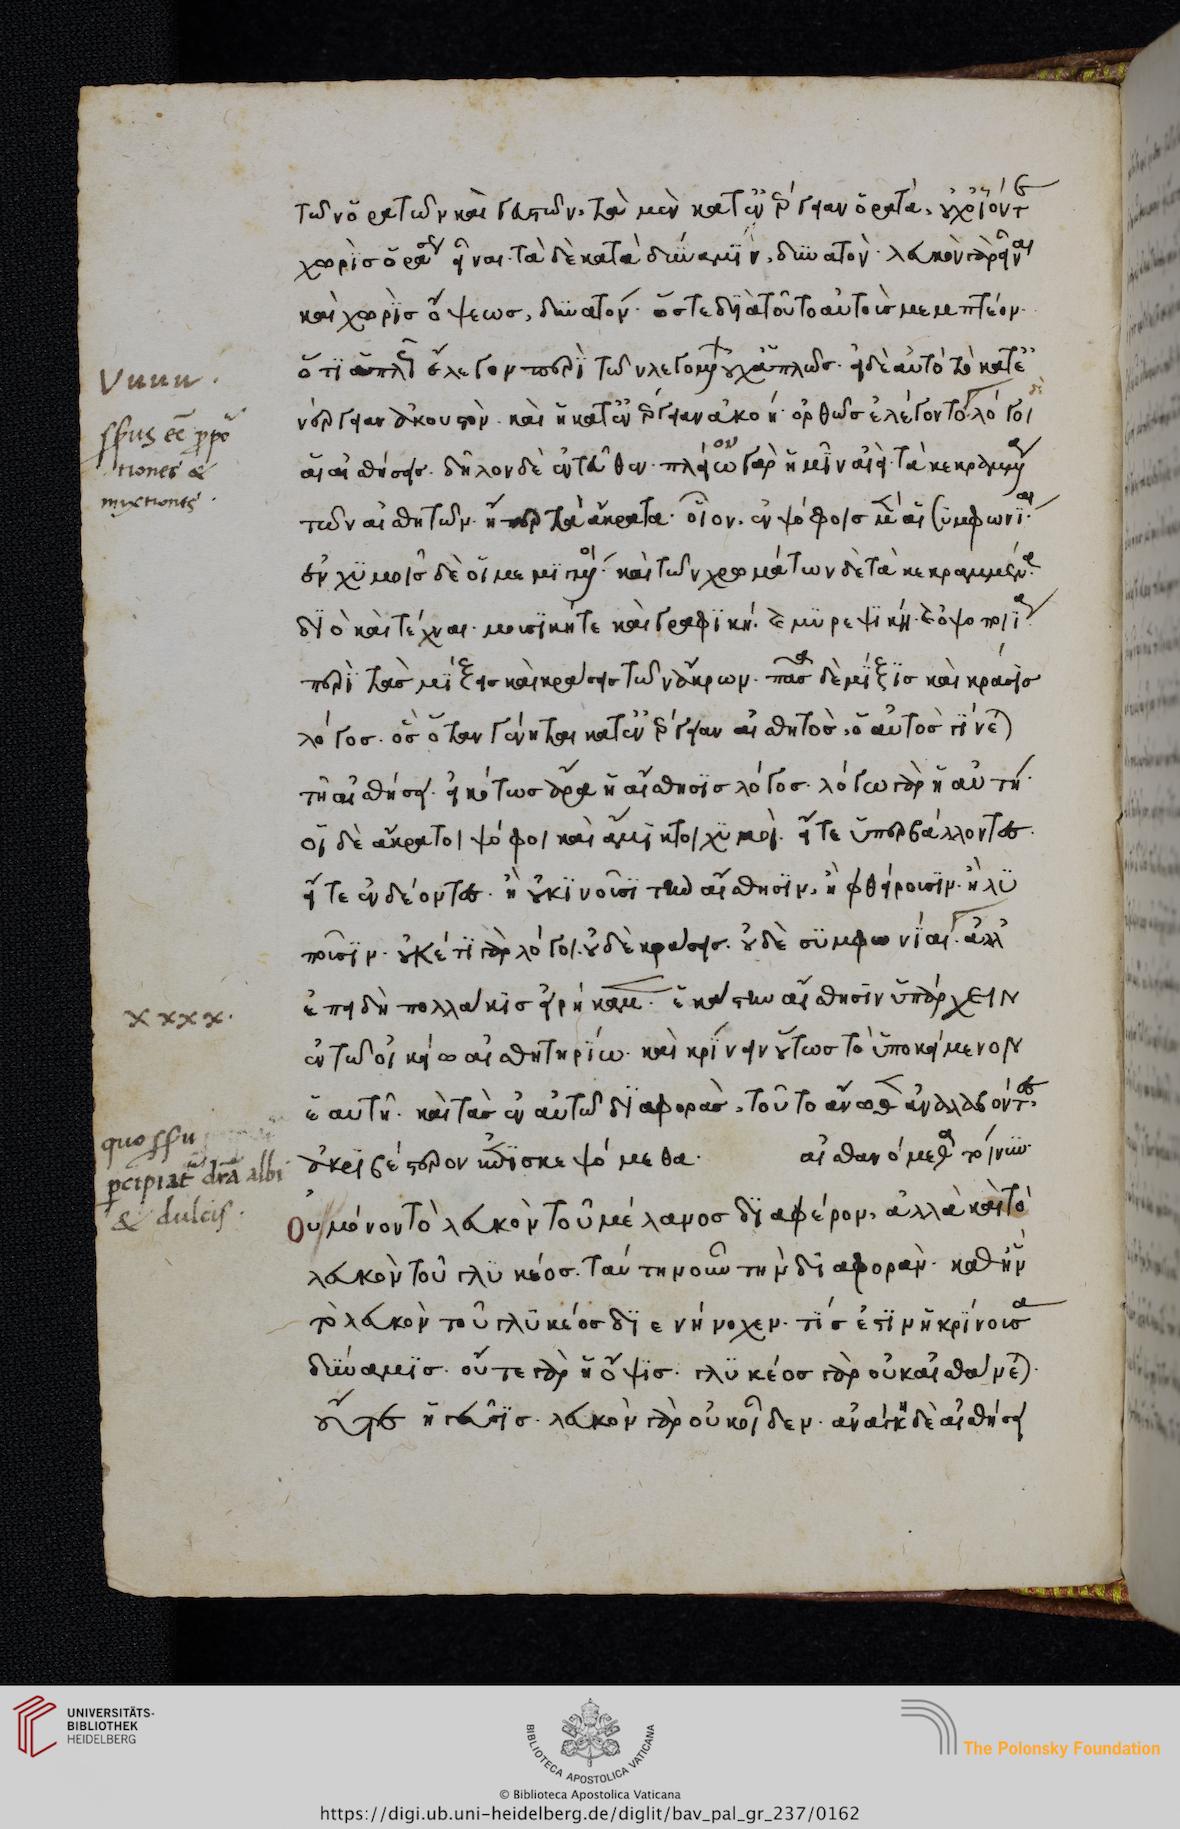 τῶν ὁρατῶν καὶ γευστῶν. τὰ μὲν κατ' ἐνέργειαν ὁρατὰ, οὐχ οἷόν τε
χωρὶς ὁρᾶν εἶναι. τὰ δὲ κατὰ δύναμιν, δυνατόν. λευκὸν γὰρ εἶναι
καὶ χωρὶς ὄψεως, δυνατόν. ὥστε διὰ τοῦτο αὐτοῖς μεμπτέον.
Vuuu.
ὅτι ἁπλῶς ἔλεγον περὶ τῶν λεγομένων οὐχ ἁπλῶς. εἰ δὲ αὐτὸ τὸ κατ' ἐ
νέργειαν ἀκουστὸν. καὶ ἡ κατ' ἐνέργειαν ἀκοή. ὀρθῶς ἐλέγοντο λόγοι
sensus est propor
tiones &
mixtiones.
αἱ αἰσθήσεις. δῆλον δὲ ἐντεῦθεν. πλείω γὰρ ἡμῖν τὰ κεκραμένα
τῶν αἰσθητῶν. ἤπερ τὰ ἄκρατα. οἷον. ἐν ψόφοις μὲν αἱ συμφωνίαι.
ἐν χυμοῖς δὲ οἱ μεμιγμένοι. καὶ τῶν χρωμάτων δὲ τὰ κεκραμμένα.
διὸ καὶ τέχναι. μουσική τε καὶ γραφική. καὶ μυρεψική. καὶ ὀψοποιΐα
περὶ τὰς μίξεις καὶ κράσεις τῶν ἄκρων. πᾶσα δὲ μίξις καὶ κράσις
λόγος. ὃς ὅταν γένηται κατ' ἐνέργειαν αἰσθητὸς, ὁ αὐτὸς γίνεται
τῇ αἰσθήσει. εἰκότως ἄρα ἡ αἴσθησις λόγος. λόγω γὰρ ἡ αὐτή.
οἱ δὲ ἄκρατοι ψόφοι καὶ ἄμικτοι χυμοὶ. εἴτε ὑπερβάλλοντες.
εἴτε ἐνδέοντες. ἢ οὐ κινοῦσι τὴν αἴσθησιν, ἢ φθείρουσιν. ἢ λυ
ποῦσιν. οὐκέτι γὰρ λόγοι. οὐδὲ κράσεις. οὐδὲ συμφωνίαι. ἀλλ'
xxxx.
ἐπειδὴ πολλάκις εἰρήκαμεν. ἑκάστην αἴσθησιν ὑπάρχειν
ἐν τῶ οἰκείω αἰσθητηρίω. καὶ κρίνειν οὕτως τὸ ὑποκείμενον
ἑαυτῇ. καὶ τὰς ἐν αὐτῶ διαφορὰς, τοῦτο ἄνωθεν ἀναλαβόντες,
quo sensu
percipiatur dra albi
& dulcis.
ἀκριβέστερον ἐπισκεψόμεθα. αἰσθανόμεθα
Οὐ μόνον τὸ λευκὸν τοῦ μέλανος διαφέρον, ἀλλὰ καὶ τὸ
λευκὸν τοῦ γλυκέος. ταύτην οὖν τὴν διαφορὰν. καθ' ἣν
τὸ λευκὸν τοῦ γλυκέος διενήνοχεν. τίς ἐστιν ἡ κρίνουσα
δύναμις. οὔτε γὰρ ἡ ὄψις. γλυκέος γὰρ οὐκ αἰσθάνεται.
οὔτε ἡ γεῦσις. λευκὸν γὰρ οὐκ οἶδεν. ἀνάγκη δὲ αἰσθήσει
UNIVERSITÄTS-
BIBLIOTHEK
HEIDELBERG
BIBLIOTECA APOSTOLICA VATICANA
The Polonsky Foundation
© Biblioteca Apostolica Vaticana
https://digi.ub.uni-heidelberg.de/diglit/bav_pal_gr_237/0162